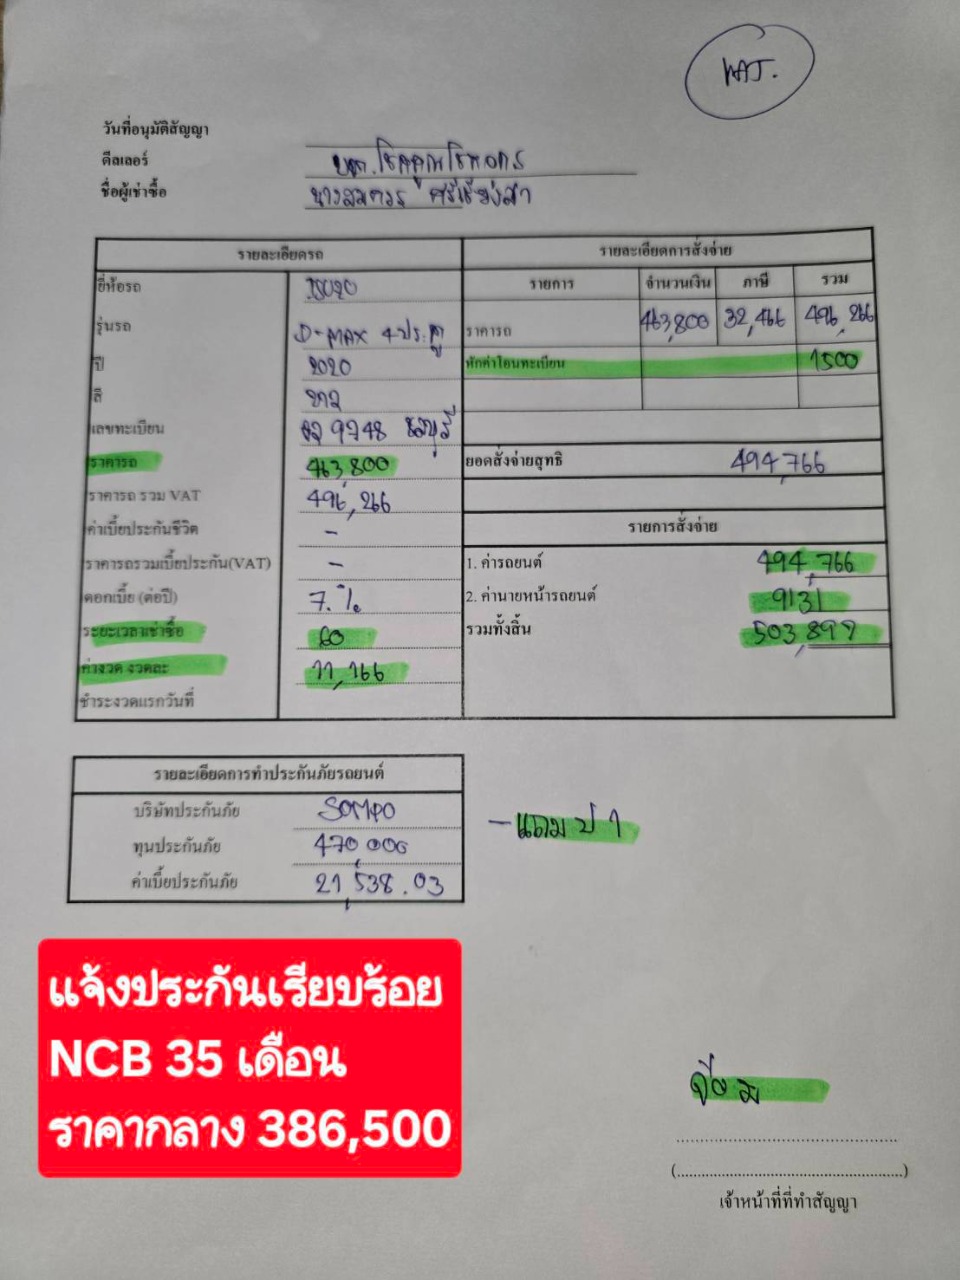 VAT.
วันที่อนุมัติสัญญา
ดีลเลอร์
ชื่อผู้เช่าซื้อ นางสมควร
รายละเอียดรถ
ยี่ห้อรถ ISUZU
รุ่นรถ D-MAX 4 ประตู
ปี 2020
สี ขาว
เลขทะเบียน 9748 ชลบุรี
ราคารถ 463,800
ราคารถ รวม VAT 496,266
ค่าเบี้ยประกันชีวิต -
ราคารถรวมเบี้ยประกัน(VAT) -
ดอกเบี้ย (ต่อปี) 7.%
ระยะเวลาเช่าซื้อ 60
ค่างวด งวดละ 11,166
ชำระงวดแรกวันที่
รายละเอียดการสั่งจ่าย
รายการ จำนวนเงิน ภาษี รวม
ราคารถ 463,800 32,466 496,266
หักค่าโอนทะเบียน 1500
ยอดสั่งจ่ายสุทธิ 494,766
รายการสั่งจ่าย
1. ค่ารถยนต์ 494,766
2. ค่านายหน้ารถยนต์ 9131
รวมทั้งสิ้น 503,897
รายละเอียดการทำประกันภัยรถยนต์
บริษัทประกันภัย SOMPO
ทุนประกันภัย 470,000
ค่าเบี้ยประกันภัย 21,538.03
- แถม ป 1
แจ้งประกันเรียบร้อย
NCB 35 เดือน
ราคากลาง 386,500
(....................................................)
เจ้าหน้าที่ที่ทำสัญญา